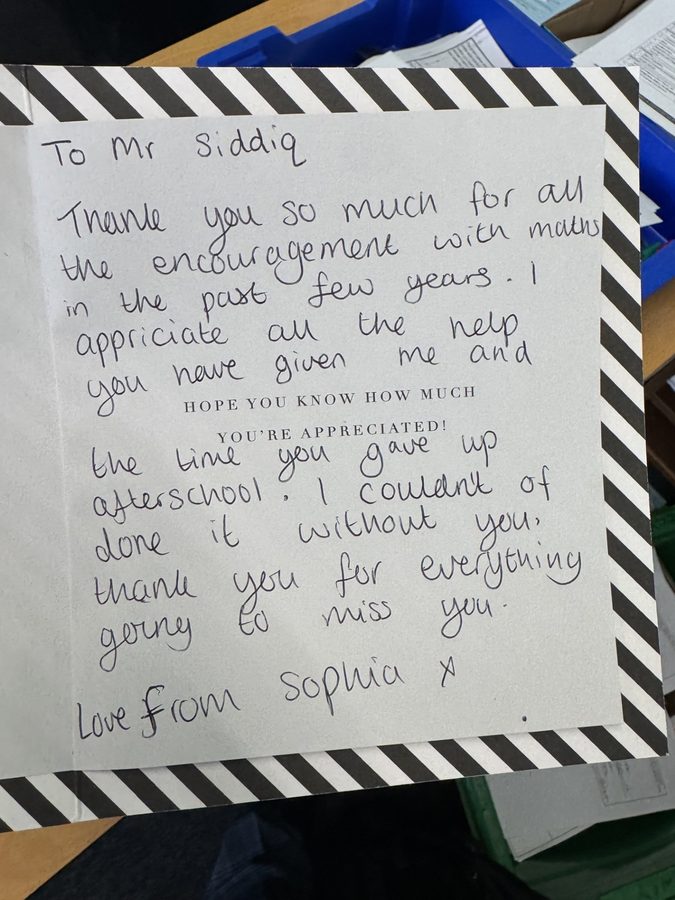 To Mr Siddiq
Thank you so much for all
the encouragement with maths
in the past few years. I
appriciate all the help
you have given me and
HOPE YOU KNOW HOW MUCH
YOU'RE APPRECIATED!
the time you gave up
afterschool. I couldnt of
done it without you,
thank you for everything
going to miss you.
Love from Sophia x